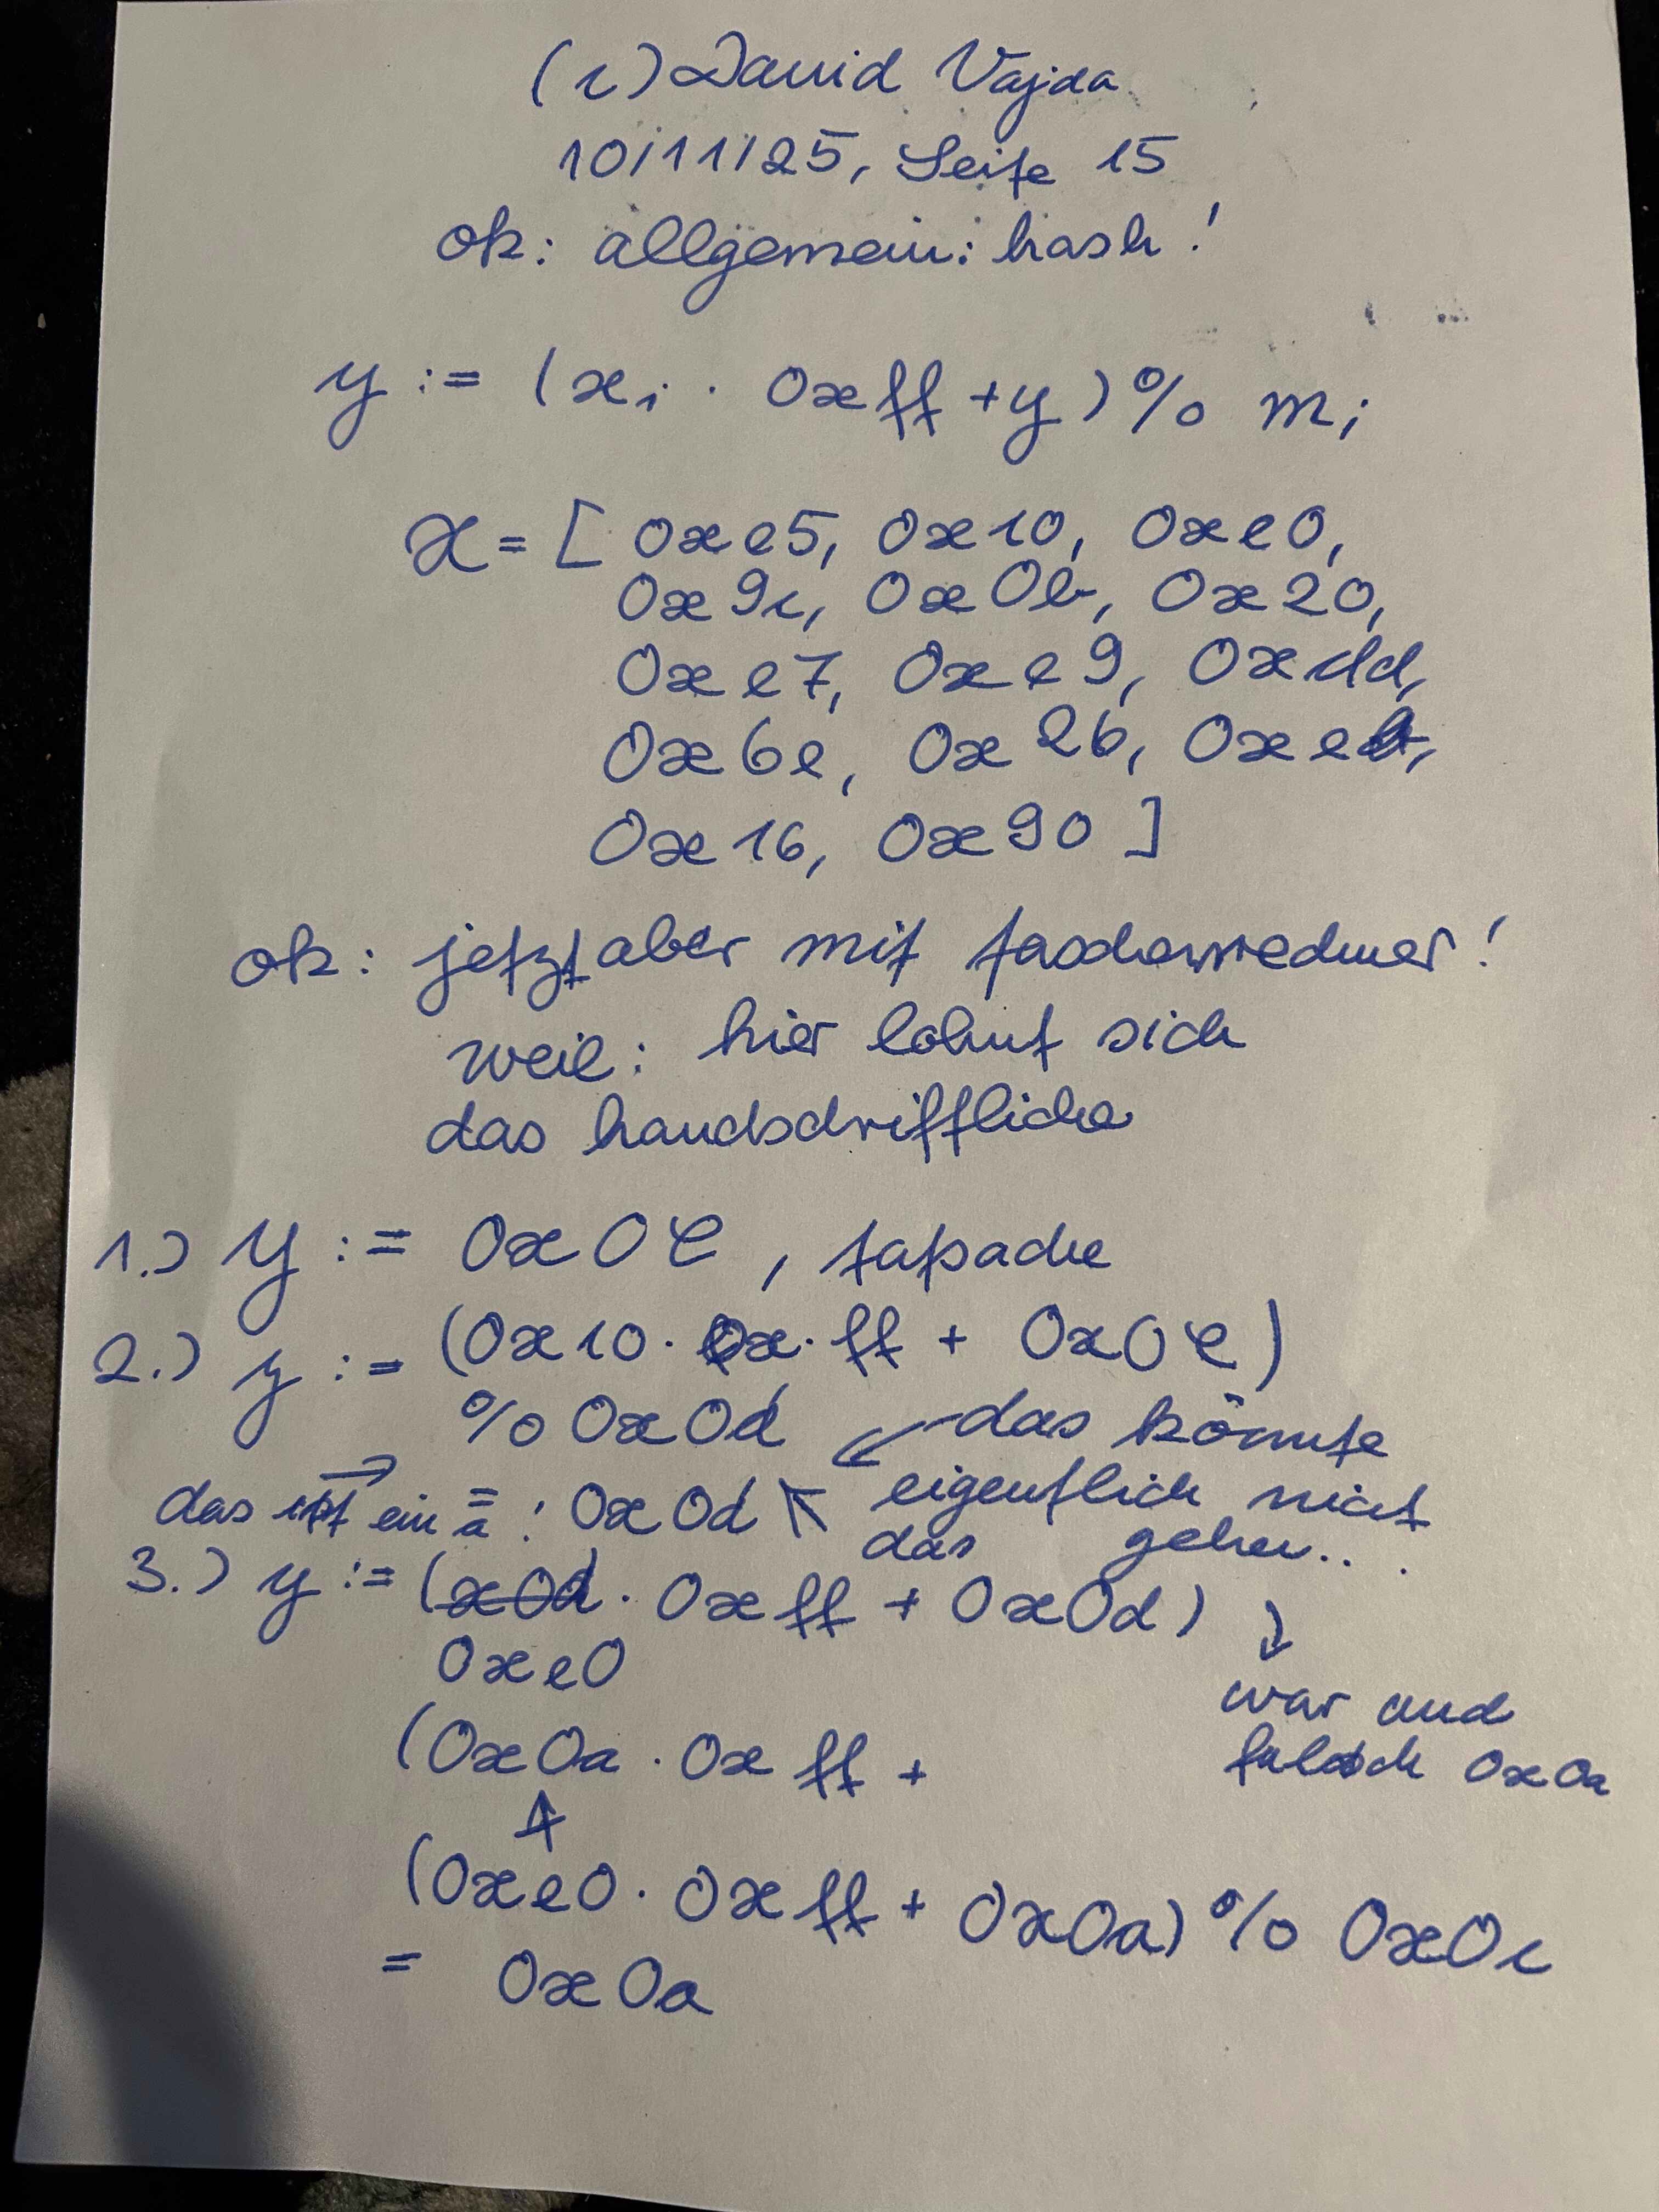 (c) David Vajda
10/11/25, Seite 15
ok: allgemein: hash!
y := (xi · 0xff + y) % m;
x = [ 0xe5, 0x10, 0xe0,
0x9c, 0x0b, 0x20,
0xe7, 0xe9, 0xdd,
0x6e, 0x26, 0xeb,
0x16, 0x90 ]
ok: jetzt aber mit taschenrechner!
weil: hier lohnt sich
das handschriftliche
1.) y := 0x0e, tatsache
2.) y := (0x10 · 0x·ff + 0x0e)
% 0x0d das könnte
das ist ein a! 0x0d eigentlich nicht
das gehen...
3.) y := (x0d · 0xff + 0x0d)
0xe0
war auch
(0x0a · 0xff + falsch 0x0a
(0xe0 · 0xff + 0x0a) % 0x0c
= 0x0a